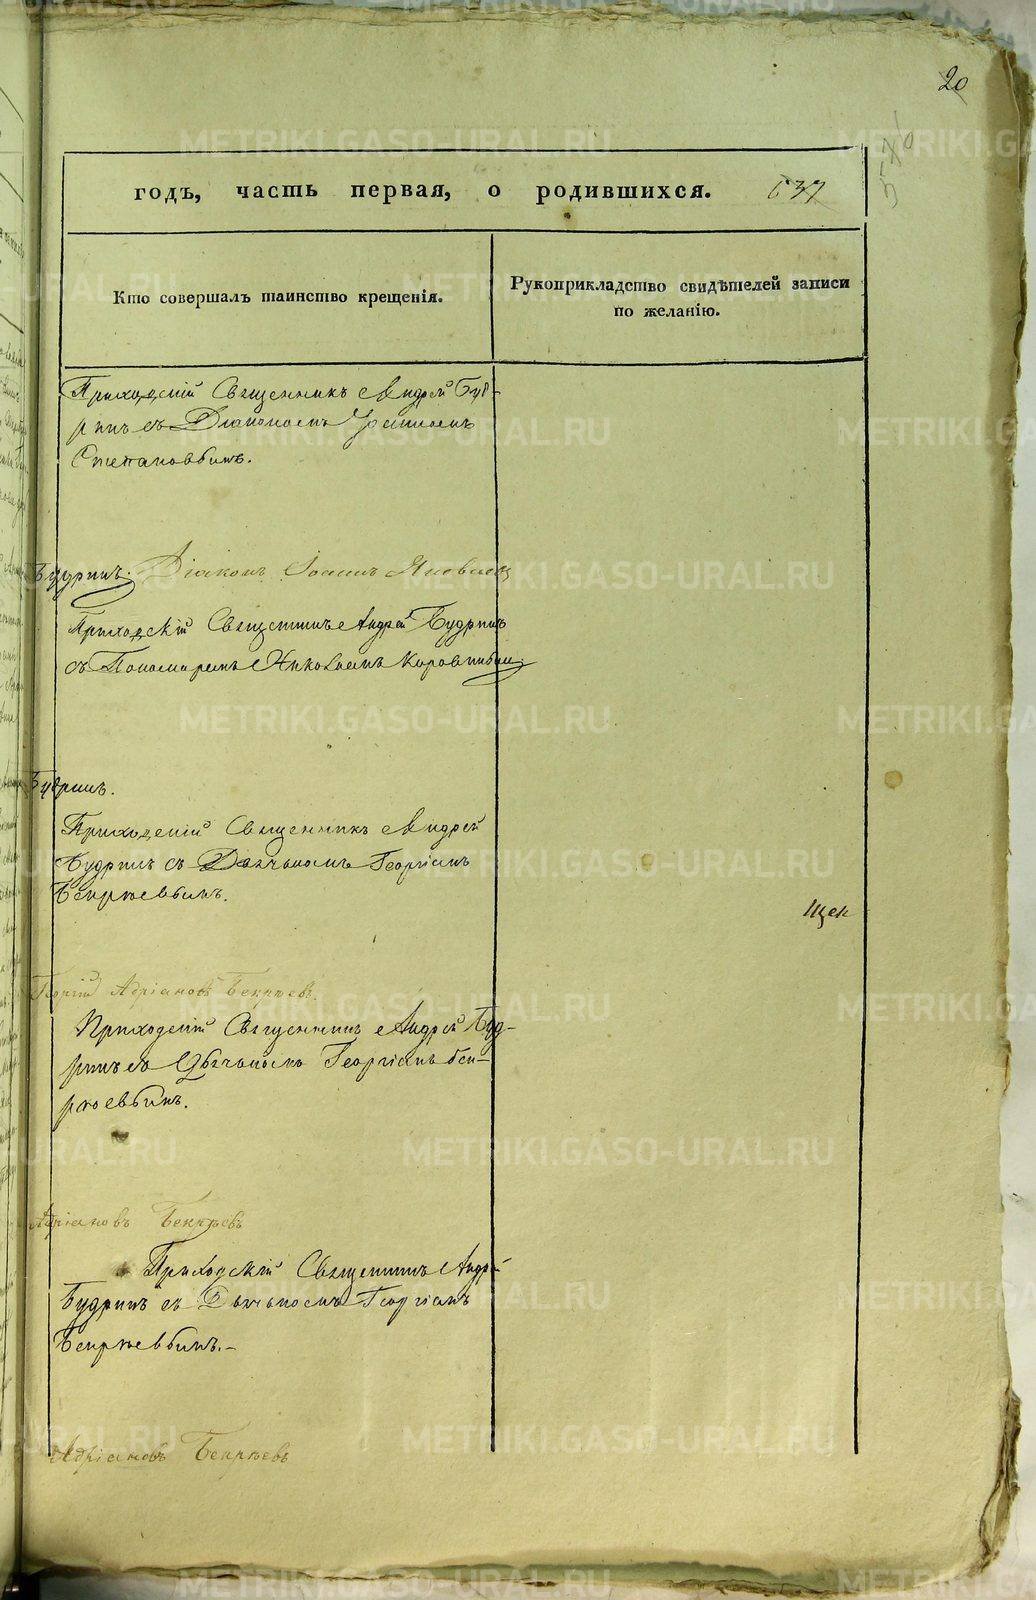 METRIKI.GASO-URAL.RU
20
годъ, часть первая, о родившихся. 637
Кто совершалъ таинство крещенія.
Рукоприкладство свидѣтелей записи
по желанію.
Приходскій Священникъ Андрей Буд-
ринъ съ Діакономъ
Степановымъ.
Будринъ. Діаконъ Іоаннъ Яковлевъ
Приходскій Священникъ Андрей Будринъ
съ Пономаремъ Николаемъ Коровинымъ
Будринъ.
Приходскій Священникъ Андрей
Будринъ съ Дьячкомъ Георгіемъ
Бекрѣевымъ.
Щек
Георгій Адріановъ Бекрѣевъ.
Приходскій Священникъ Андрей Буд-
ринъ съ Дьячкомъ Георгіемъ Бек-
рѣевымъ.
Адріановъ Бекрѣевъ
Приходскій Священникъ Андрей
Будринъ съ Дьячкомъ Георгіемъ
Бекрѣевымъ.-
Адріановъ Бекрѣевъ